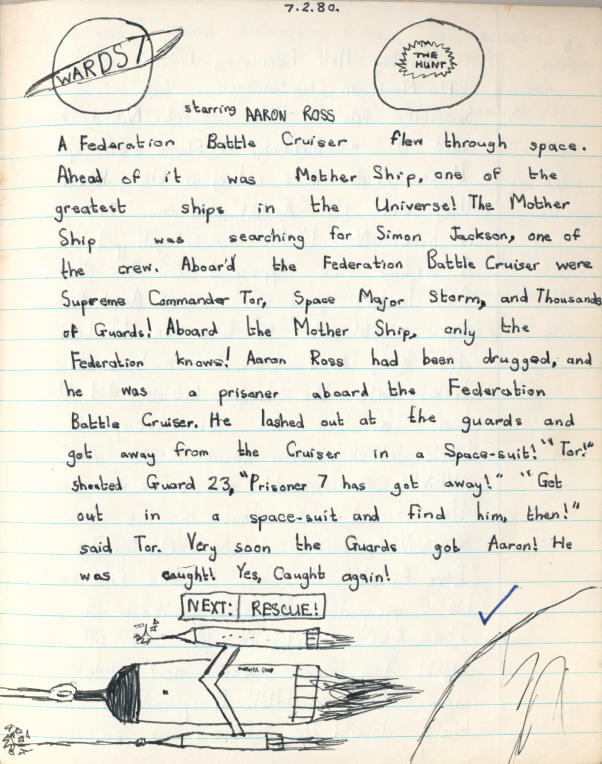 7.2.80.
WARDS 7
THE
HUNT
starring AARON ROSS
A Federation Battle Cruiser flew through space.
Ahead of it was Mother Ship, one of the
greatest ships in the Universe! The Mother
Ship was searching for Simon Jackson, one of
the crew. Aboar'd the Federation Battle Cruiser were
Supreme Commander Tor, Space Major Storm, and Thousands
of Guards! Aboard the Mother Ship, only the
Federation knows! Aaron Ross had been drugged, and
he was a prisoner aboard the Federation
Battle Cruiser. He lashed out at the guards and
got away from the Cruiser in a Space-suit! "Tor!"
shouted Guard 23, "Prisoner 7 has got away!" "Get
out in a space-suit and find him, then!"
said Tor. Very soon the Guards got Aaron! He
was caught! Yes, Caught again!
NEXT: RESCUE!
MOTHER SHIP